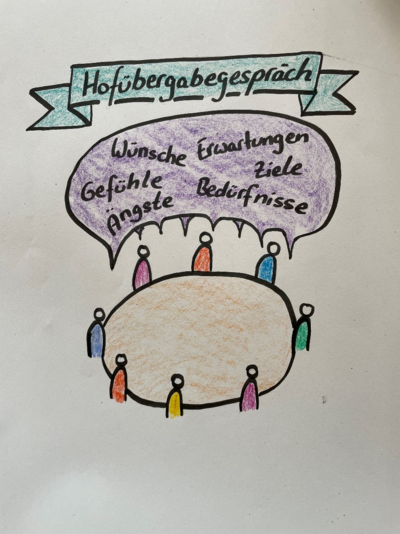 Hofübergabegespräch
Wünsche Erwartungen
Gefühle Ziele
Ängste Bedürfnisse